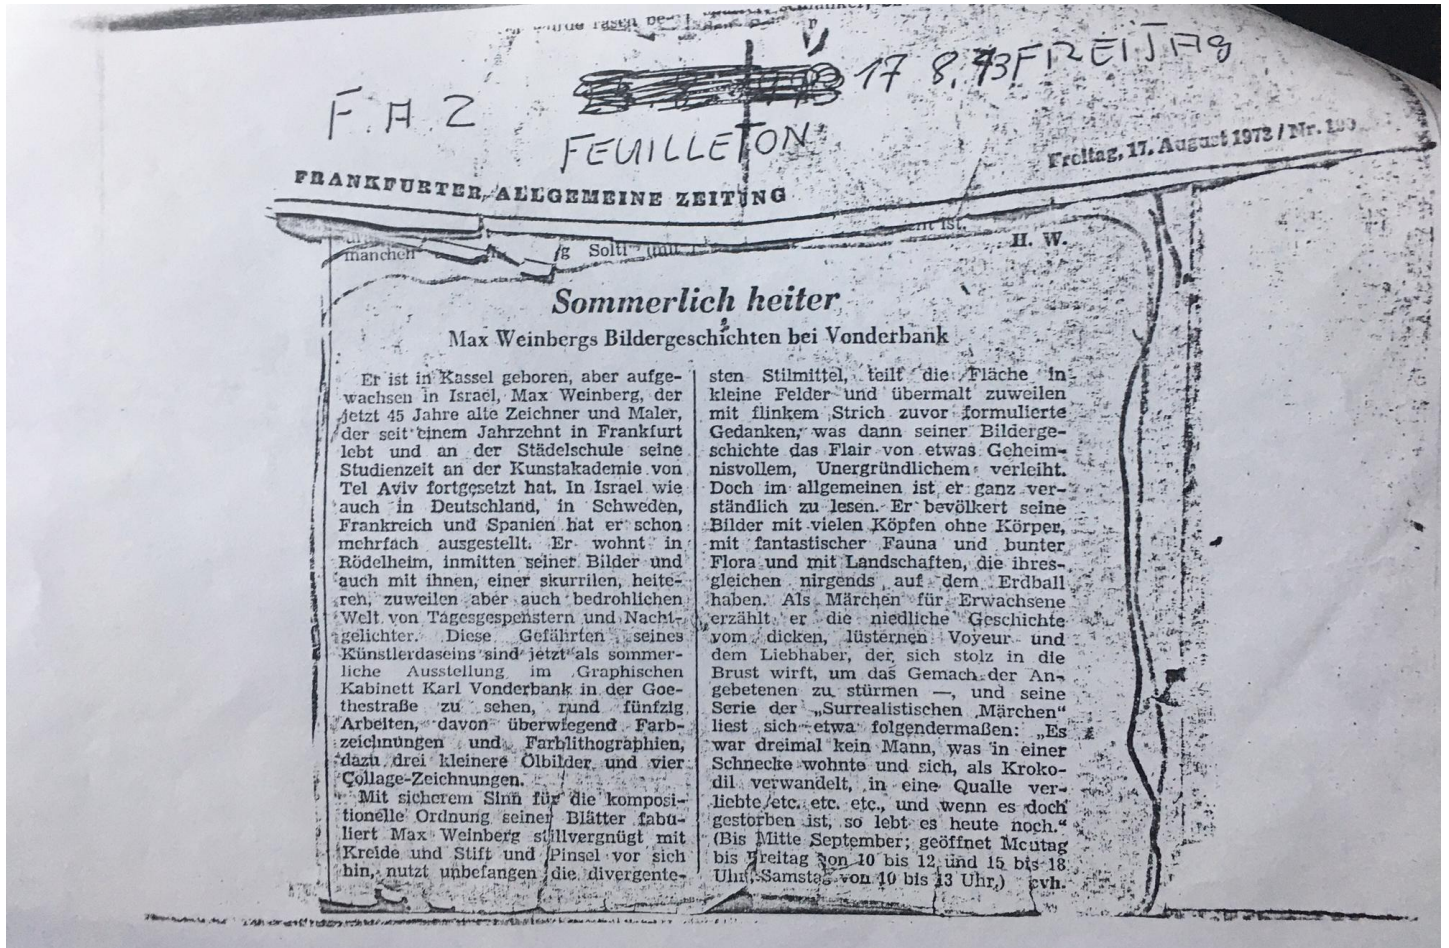 F.A.Z
17 8.73 FREITAG
FEUILLETON
FRANKFURTER ALLGEMEINE ZEITUNG
Freitag, 17. August 1973 / Nr.
manchen
Solti
H. W.
Sommerlich heiter
Max Weinbergs Bildergeschichten bei Vonderbank
Er ist in Kassel geboren, aber aufge-
wachsen in Israel, Max Weinberg, der
jetzt 45 Jahre alte Zeichner und Maler,
der seit einem Jahrzehnt in Frankfurt
lebt und an der Städelschule seine
Studienzeit an der Kunstakademie von
Tel Aviv fortgesetzt hat. In Israel wie
auch in Deutschland, in Schweden,
Frankreich und Spanien hat er schon
mehrfach ausgestellt. Er wohnt in
Rödelheim, inmitten seiner Bilder und
auch mit ihnen, einer skurrilen, heite-
ren, zuweilen aber auch bedrohlichen
Welt von Tagesgespenstern und Nacht-
gelichter. Diese Gefährten seines
Künstlerdaseins sind jetzt als sommer-
liche Ausstellung im Graphischen
Kabinett Karl Vonderbank in der Goe-
thestraße zu sehen, rund fünfzig
Arbeiten, davon überwiegend Farb-
zeichnungen und Farblithographien,
dazu drei kleinere Ölbilder und vier
Collage-Zeichnungen.
Mit sicherem Sinn für die komposi-
tionelle Ordnung seiner Blätter fabu-
liert Max Weinberg stillvergnügt mit
Kreide und Stift und Pinsel vor sich
hin, nutzt unbefangen die divergente-
sten Stilmittel, teilt die Fläche in
kleine Felder und übermalt zuweilen
mit flinkem Strich zuvor formulierte
Gedanken, was dann seiner Bilderge-
schichte das Flair von etwas Geheim-
nisvollem, Unergründlichem verleiht.
Doch im allgemeinen ist er ganz ver-
ständlich zu lesen. Er bevölkert seine
Bilder mit vielen Köpfen ohne Körper,
mit fantastischer Fauna und bunter
Flora und mit Landschaften, die ihres-
gleichen nirgends auf dem Erdball
haben. Als Märchen für Erwachsene
erzählt er die niedliche Geschichte
vom dicken, lüsternen Voyeur und
dem Liebhaber, der sich stolz in die
Brust wirft, um das Gemach der An-
gebetenen zu stürmen —, und seine
Serie der „Surrealistischen Märchen“
liest sich etwa folgendermaßen: „Es
war dreimal kein Mann, was in einer
Schnecke wohnte und sich, als Kroko-
dil verwandelt, in eine Qualle ver-
liebte etc. etc. etc., und wenn es doch
gestorben ist, so lebt es heute noch.“
(Bis Mitte September; geöffnet Montag
bis Freitag von 10 bis 12 und 15 bis 18
Uhr, Samstag von 10 bis 13 Uhr.) cvh.